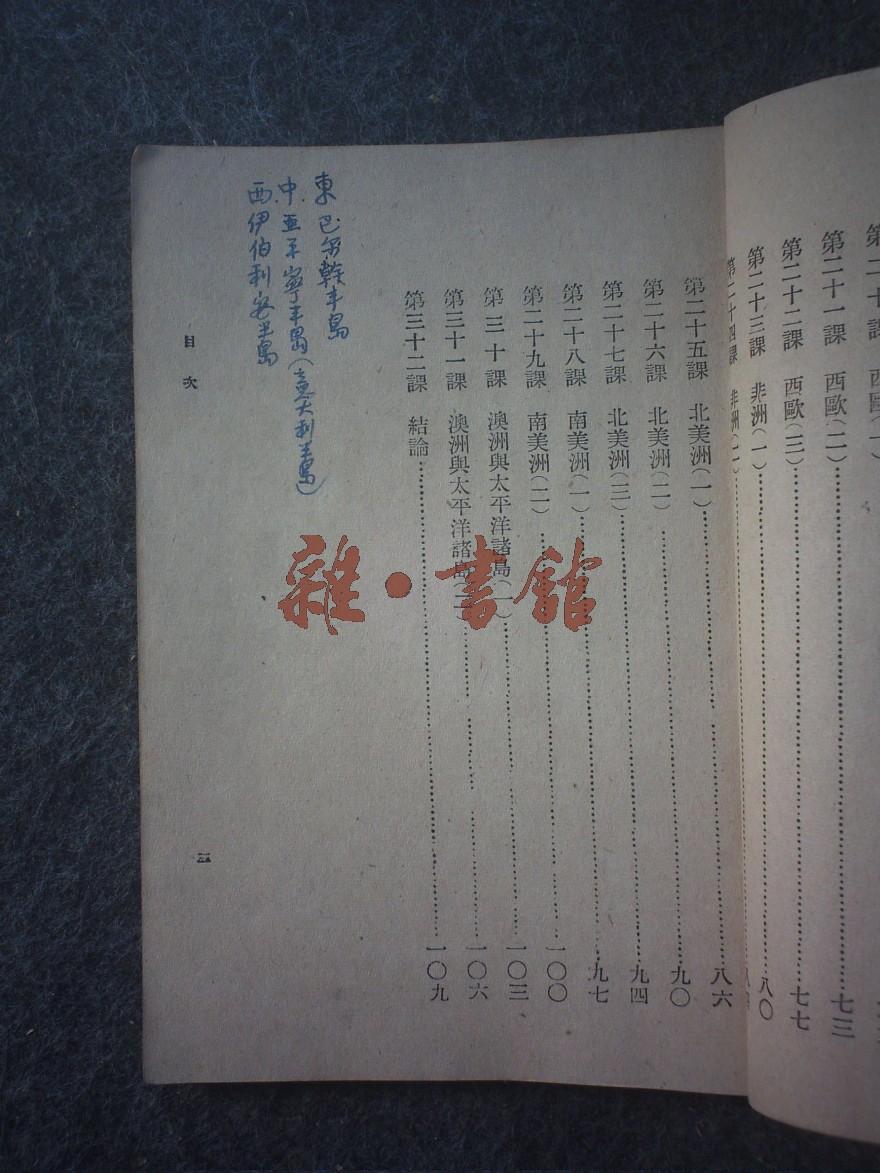 第二十一課 西歐(二)……七三
第二十二課 西歐(三)……七七
第二十三課 非洲(一)……八〇
第二十四課 非洲(二)……
第二十五課 北美洲(一)……八六
第二十六課 北美洲(二)……九〇
第二十七課 北美洲(三)……九四
第二十八課 南美洲(一)……九七
第二十九課 南美洲(二)……一〇〇
第三十課 澳洲與太平洋諸島(一)……一〇三
第三十一課 澳洲與太平洋諸島(二)……一〇六
第三十二課 結論……一〇九
東 巴尔幹半島
中 亚平寧半島(意大利半島)
西 伊伯利安半島
目次
三
雜·書館